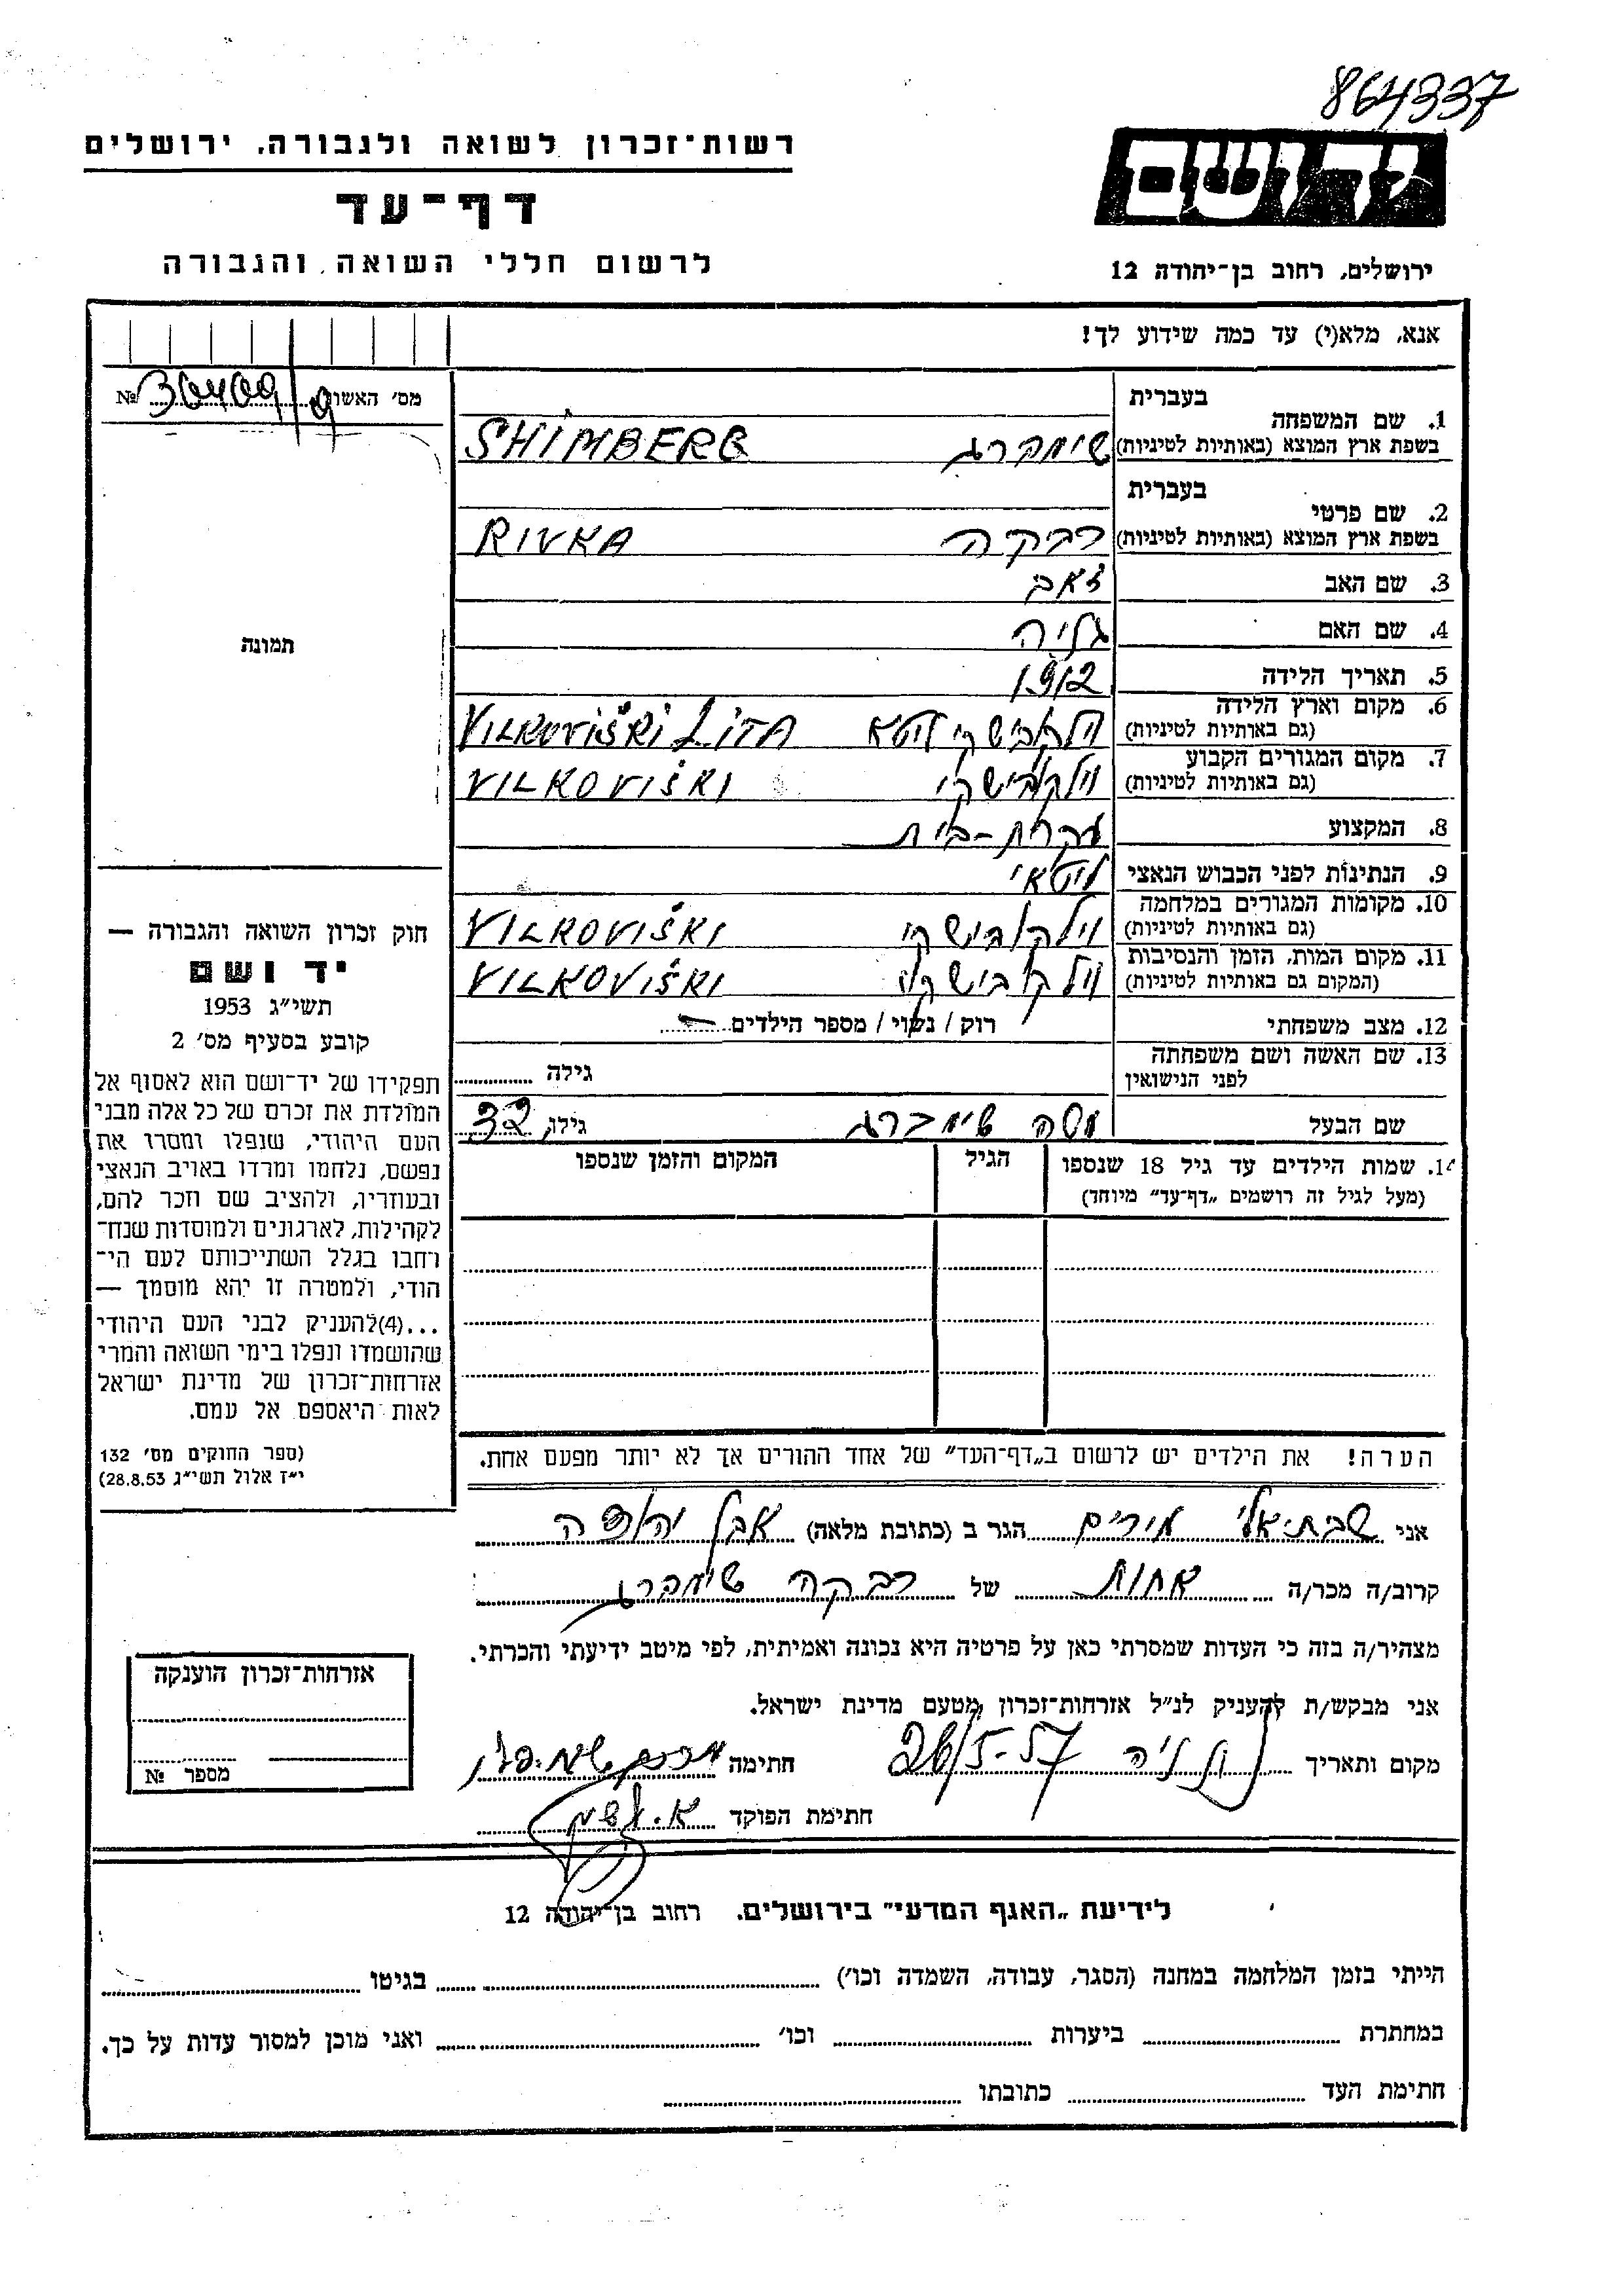 864337
רשות־זכרון לשואה ולגבורה, ירושלים
דף־עד
לרשום חללי השואה והגבורה
יד ושם
ירושלים, רחוב בן־יהודה 12
אנא, מלא(י) עד כמה שידוע לך!
מס׳ האשור №
1. שם המשפחה בעברית
בשפת ארץ המוצא (באותיות לטיניות) שימברג SHIMBERG
2. שם פרטי בעברית
בשפת ארץ המוצא (באותיות לטיניות) רבקה RIVKA
3. שם האב זאב
4. שם האם
5. תאריך הלידה 1912
6. מקום וארץ הלידה
(גם באותיות לטיניות) ליטא VILKOVIŠKI LITA
7. מקום המגורים הקבוע
(גם באותיות לטיניות) וילקובישקי VILKOVIŠKI
8. המקצוע עקרת-בית
9. הנתינות לפני הכבוש הנאצי ליטאי
10. מקומות המגורים במלחמה
(גם באותיות לטיניות) וילקובישקי VILKOVIŠKI
11. מקום המות, הזמן והנסיבות
(המקום גם באותיות לטיניות) וילקובישקי VILKOVIŠKI
12. מצב משפחתי רוק / נשוי / מספר הילדים
13. שם האשה ושם משפחתה
לפני הנישואין גילה
שם הבעל משה שימברג גילו 32
14. שמות הילדים עד גיל 18 שנספו הגיל המקום והזמן שנספו
(מעל לגיל זה רושמים „דף־עד״ מיוחד)
תמונה
חוק זכרון השואה והגבורה —
יד ושם
תשי״ג 1953
קובע בסעיף מס׳ 2
תפקידו של יד־ושם הוא לאסוף אל
המולדת את זכרם של כל אלה מבני
העם היהודי, שנפלו ומסרו את
נפשם, נלחמו ומרדו באויב הנאצי
ובעוזריו, ולהציב שם וזכר להם,
לקהילות, לארגונים ולמוסדות שנח־
רחבו בגלל השתייכותם לעם הי־
הודי, ולמטרה זו יהא מוסמך —
...(4)להעניק לבני העם היהודי
שהושמדו ונפלו בימי השואה והמרי
אזרחות־זכרון של מדינת ישראל
לאות היאספם אל עמם.
(ספר החוקים מס׳ 132
י״ז אלול תשי״ג 28.8.53)
הערה! את הילדים יש לרשום ב„דף־העד״ של אחד ההורים אך לא יותר מפעם אחת.
אני שבתאלי מרים הגר ב (כתובת מלאה) אבן יהודה
קרוב/ה מכר/ה אחות של רבקה שימברג
מצהיר/ה בזה כי העדות שמסרתי כאן על פרטיה היא נכונה ואמיתית, לפי מיטב ידיעתי והכרתי.
אני מבקש/ת להעניק לנ״ל אזרחות־זכרון מטעם מדינת ישראל.
מקום ותאריך נתניה 26/5-57 חתימה
חתימת הפוקד
אזרחות־זכרון הוענקה
מספר №
לידיעת „האגף המדעי״ בירושלים. רחוב בן־יהודה 12
הייתי בזמן המלחמה במחנה (הסגר, עבודה, השמדה וכו׳) בגיטו
במחתרת ביערות וכו׳ ואני מוכן למסור עדות על כך.
חתימת העד כתובתו